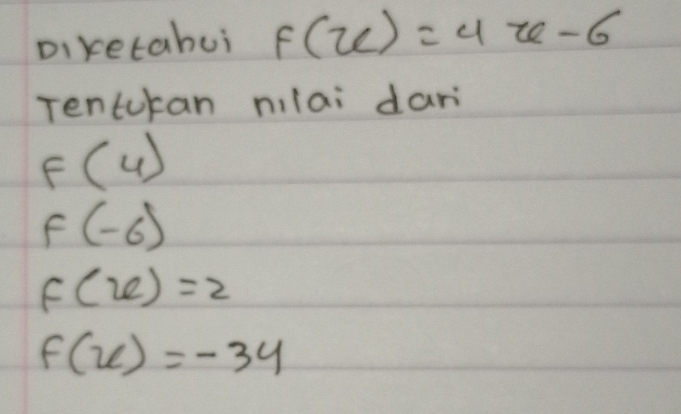 Diketahui f(x) = 4x - 6
Tentukan nilai dari
f(4)
f(-6)
f(x) = 2
f(x) = -34